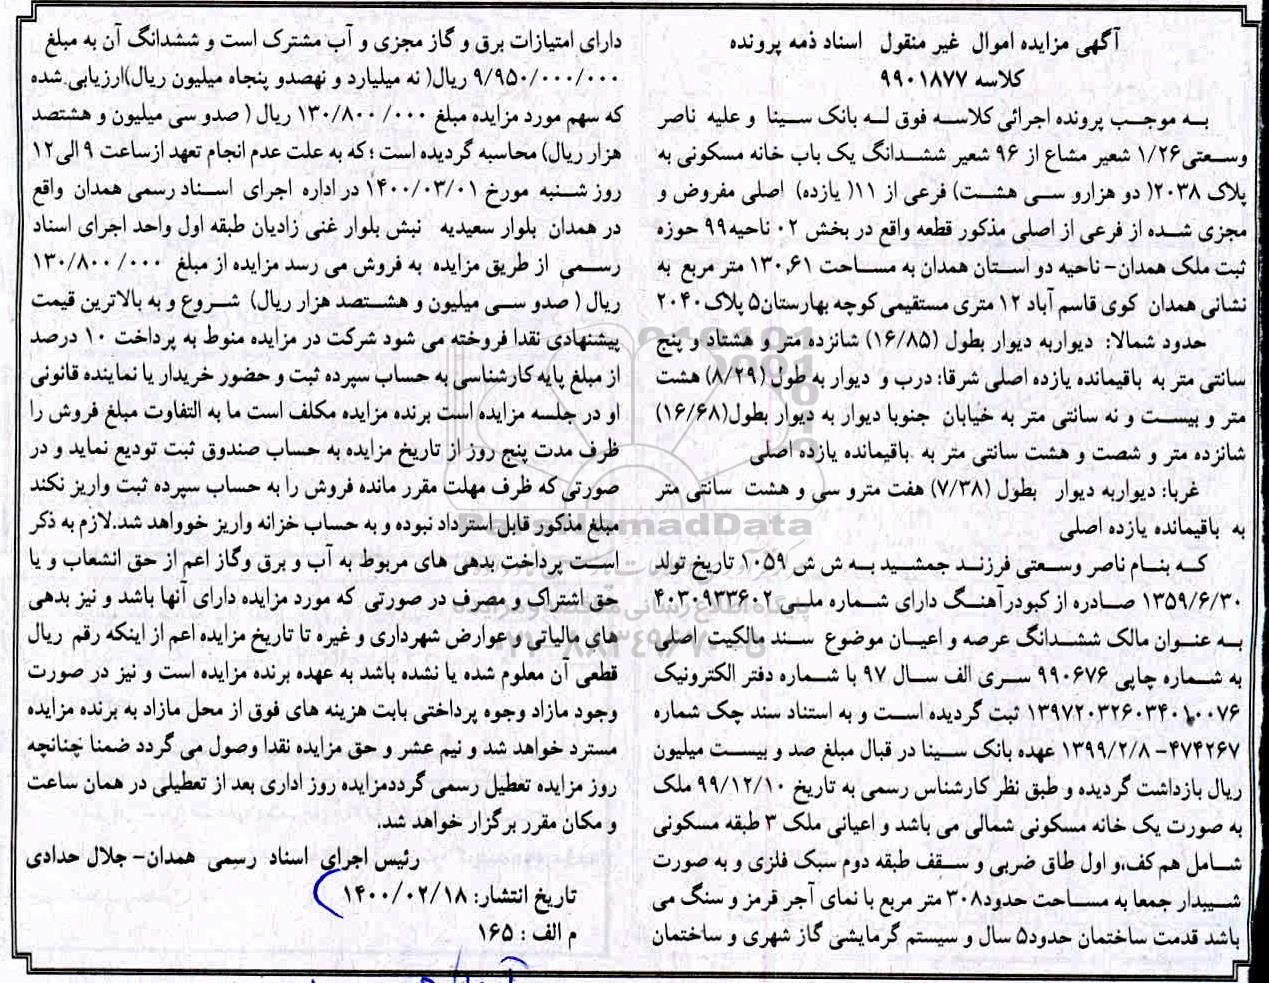 آگهی مزایده اموال غیر منقول اسناد ذمه پرونده
کلاسه ۹۹۰۱۸۷۷
به موجب پرونده اجرائی کلاسه فوق له بانک سینا و علیه ناصر
وسعتی۱/۲۶ شعیر مشاع از ۹۶ شعیر ششدانگ یک باب خانه مسکونی به
پلاک ۲۰۳۸( دو هزارو سی هشت) فرعی از ۱۱( یازده) اصلی مفروض و
مجزی شده از فرعی از اصلی مذکور قطعه واقع در بخش ۰۲ ناحیه۹۹ حوزه
ثبت ملک همدان- ناحیه دو استان همدان به مساحت ۱۳۰,۶۱ متر مربع به
نشانی همدان کوی قاسم آباد ۱۲ متری مستقیمی کوچه بهارستان۵ پلاک۲۰۴۰
حدود شمالا: دیواربه دیوار بطول (۱۶/۸۵) شانزده متر و هشتاد و پنج
سانتی متر به باقیمانده یازده اصلی شرقا: درب و دیوار به طول (۸/۲۹) هشت
متر و بیست و نه سانتی متر به خیابان جنوبا دیوار به دیوار بطول(۱۶/۶۸)
شانزده متر و شصت و هشت سانتی متر به باقیمانده یازده اصلی
غربا: دیواربه دیوار بطول (۷/۳۸) هفت مترو سی و هشت سانتی متر
به باقیمانده یازده اصلی
که بنام ناصر وسعتی فرزند جمشید به ش ش ۱۰۵۹ تاریخ تولد
۱۳۵۹/۶/۳۰ صادره از کبودرآهنگ دارای شماره ملی ۴۰۳۰۹۳۳۶۰۲
به عنوان مالک ششدانگ عرصه و اعیان موضوع سند مالکیت اصلی
به شماره چاپی ۹۹۰۶۷۶ سری الف سال ۹۷ با شماره دفتر الکترونیک
۱۳۹۷۲۰۳۲۶۰۳۴۰۱۰۰۷۶ ثبت گردیده است و به استناد سند چک شماره
۴۷۴۲۶۷- ۱۳۹۹/۲/۸ عهده بانک سینا در قبال مبلغ صد و بیست میلیون
ریال بازداشت گردیده و طبق نظر کارشناس رسمی به تاریخ ۹۹/۱۲/۱۰ ملک
به صورت یک خانه مسکونی شمالی می باشد و اعیانی ملک ۳ طبقه مسکونی
شامل هم کف,و اول طاق ضربی و سقف طبقه دوم سبک فلزی و به صورت
شیبدار جمعا به مساحت حدود۳۰۸ متر مربع با نمای آجر قرمز و سنگ می
باشد قدمت ساختمان حدود۵ سال و سیستم گرمایشی گاز شهری و ساختمان
دارای امتیازات برق و گاز مجزی و آب مشترک است و ششدانگ آن به مبلغ
۹/۹۵۰/۰۰۰/۰۰۰ ریال( نه میلیارد و نهصدو پنجاه میلیون ریال)ارزیابی شده
که سهم مورد مزایده مبلغ ۱۳۰/۸۰۰/۰۰۰ ریال ( صدو سی میلیون و هشتصد
هزار ریال) محاسبه گردیده است ؛که به علت عدم انجام تعهد ازساعت ۹ الی۱۲
روز شنبه مورخ ۱۴۰۰/۰۳/۰۱ در اداره اجرای اسناد رسمی همدان واقع
در همدان بلوار سعیدیه نبش بلوار غنی زادیان طبقه اول واحد اجرای اسناد
رسمی از طریق مزایده به فروش می رسد مزایده از مبلغ ۱۳۰/۸۰۰/۰۰۰
ریال ( صدو سی میلیون و هشتصد هزار ریال) شروع و به بالاترین قیمت
پیشنهادی نقدا فروخته می شود شرکت در مزایده منوط به پرداخت ۱۰ درصد
از مبلغ پایه کارشناسی به حساب سپرده ثبت و حضور خریدار یا نماینده قانونی
او در جلسه مزایده است برنده مزایده مکلف است ما به التفاوت مبلغ فروش را
ظرف مدت پنج روز از تاریخ مزایده به حساب صندوق ثبت تودیع نماید و در
صورتی که ظرف مهلت مقرر مانده فروش را به حساب سپرده ثبت واریز نکند
مبلغ مذکور قابل استرداد نبوده و به حساب خزانه واریز خوواهد شد.لازم به ذکر
است پرداخت بدهی های مربوط به آب و برق وگاز اعم از حق انشعاب و یا
حق اشتراک و مصرف در صورتی که مورد مزایده دارای آنها باشد و نیز بدهی
های مالیاتی و عوارض شهرداری و غیره تا تاریخ مزایده اعم از اینکه رقم ریال
قطعی آن معلوم شده یا نشده باشد به عهده برنده مزایده است و نیز در صورت
وجود مازاد وجوه پرداختی بابت هزینه های فوق از محل مازاد به برنده مزایده
مسترد خواهد شد و نیم عشر و حق مزایده نقدا وصول می گردد ضمنا چنانچه
روز مزایده تعطیل رسمی گرددمزایده روز اداری بعد از تعطیلی در همان ساعت
و مکان مقرر برگزار خواهد شد.
رئیس اجرای اسناد رسمی همدان- جلال حدادی
تاریخ انتشار: ۱۴۰۰/۰۲/۱۸
م الف : ۱۶۵